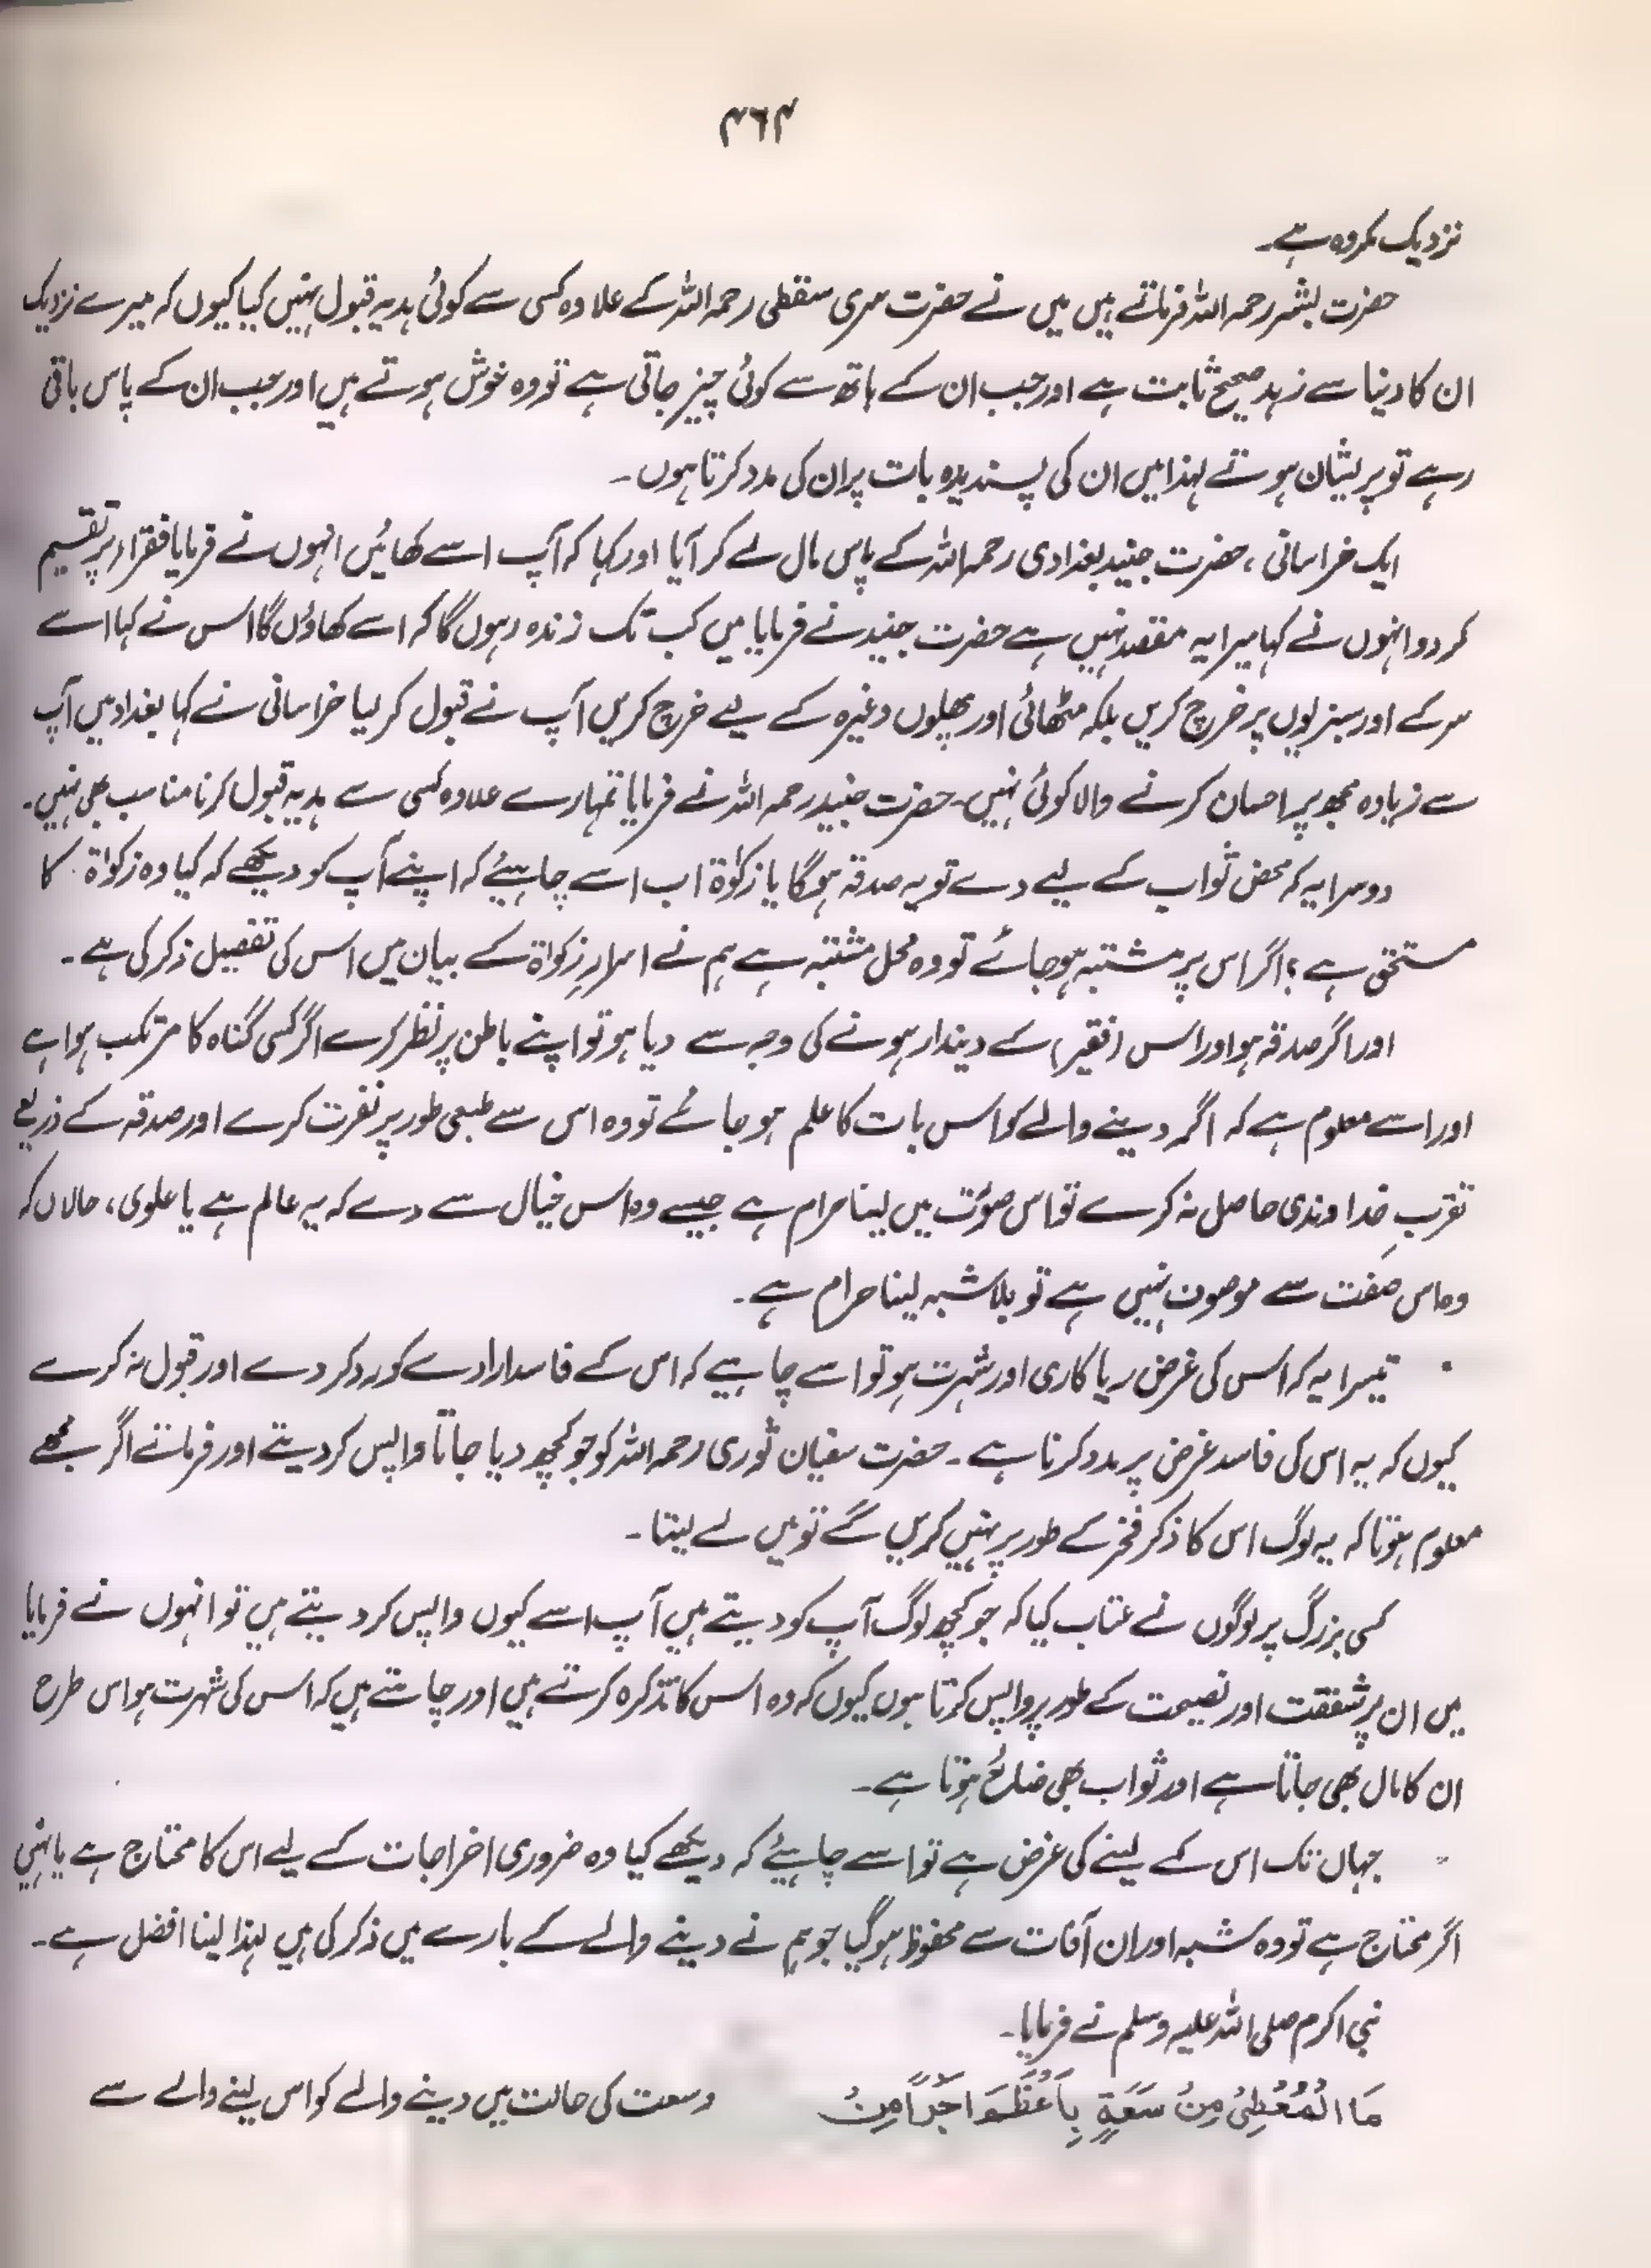 ۴۶۴
نزدیک مکروہ ہے۔
حضرت بشر رحمہ اللہ فرماتے ہیں میں نے حضرت سری سقطی رحمہ اللہ کے علاوہ کسی سے کوئی ہدیہ قبول نہیں کیا کیوں کہ میرے نزدیک
ان کا دنیا سے زہد صحیح ثابت ہے اور جب ان کے ہاتھ سے کوئی چیز جاتی ہے تو وہ خوش ہوتے ہیں اور جب ان کے پاس باقی
رہے تو پریشان ہوتے لہذا میں ان کی پسندیدہ بات پر ان کی مدد کرتا ہوں۔
ایک خراسانی، حضرت جنید بغدادی رحمہ اللہ کے پاس مال لے کر آیا اور کہا کہ آپ اسے کھائیں انہوں نے فرمایا فقراء پر تقسیم
کر دو انہوں نے کہا میرا یہ مقصد نہیں ہے حضرت جنید نے فرمایا میں کب تک زندہ رہوں گا کہ اسے کھاؤں گا اس نے کہا اسے
سرکے اور سبزیوں پر خرچ کریں بلکہ مٹھائی اور پھلوں وغیرہ کے لیے خرچ کریں آپ نے قبول کر لیا خراسانی نے کہا بغداد میں آپ
سے زیادہ مجھ پر احسان کرنے والا کوئی نہیں۔ حضرت جنید رحمہ اللہ نے فرمایا تمہارے علاوہ کسی سے ہدیہ قبول کرنا مناسب بھی نہیں۔
دوسرا یہ کہ محض ثواب کے لیے دے تو یہ صدقہ ہوگا یا زکوٰۃ اب اسے چاہیئے کہ اپنے آپ کو دیکھے کہ کیا وہ زکوٰۃ کا
مستحق ہے؟ اگر اس پر مشتبہ ہو جائے تو وہ محل مشتبہ ہے ہم نے اسرارِ زکوٰۃ کے بیان میں اس کی تفصیل ذکر کی ہے۔
اور اگر صدقہ ہو اور اس (فقیر) کے دیندار ہونے کی وجہ سے دیا ہو تو اپنے باطن پر نظر کرے اگر کسی گناہ کا مرتکب ہوا ہے
اور اسے معلوم ہے کہ اگر دینے والے کو اس بات کا علم ہو جائے تو وہ اس سے طبعی طور پر نفرت کرے اور صدقہ کے ذریعے
تقربِ خداوندی حاصل نہ کرے تو اس صورت میں لینا حرام ہے جیسے وہ اس خیال سے دے کہ یہ عالم ہے یا علوی، حالاں کہ
وہ اس صفت سے موصوف نہیں ہے تو بلا شبہ لینا حرام ہے۔
تیسرا یہ کہ اس کی غرض ریا کاری اور شہرت ہو تو اسے چاہیے کہ اس کے فاسد ارادے کو رد کر دے اور قبول نہ کرے
کیوں کہ یہ اس کی فاسد غرض پر مدد کرنا ہے۔ حضرت سفیان ثوری رحمہ اللہ کو جو کچھ دیا جاتا واپس کر دیتے اور فرماتے اگر مجھے
معلوم ہوتا کہ یہ لوگ اس کا ذکر فخر کے طور پر نہیں کریں گے تو میں لے لیتا۔
کسی بزرگ پر لوگوں نے عتاب کیا کہ جو کچھ لوگ آپ کو دیتے ہیں آپ اسے کیوں واپس کر دیتے ہیں تو انہوں نے فرمایا
میں ان پر شفقت اور نصیحت کے طور پر واپس کرتا ہوں کیوں کہ وہ اس کا تذکرہ کرتے ہیں اور چاہتے ہیں کہ اس کی شہرت ہو اس طرح
ان کا مال بھی جاتا ہے اور ثواب بھی ضائع ہوتا ہے۔
جہاں تک اس کے لینے کی غرض ہے تو اسے چاہیئے کہ دیکھے کیا وہ ضروری اخراجات کے لیے اس کا محتاج ہے یا نہیں
اگر محتاج ہے تو وہ شبہ اور ان آفات سے محفوظ ہو گیا جو ہم نے دینے والے کے بارے میں ذکر کی ہیں لہذا لینا افضل ہے۔
نبی اکرم صلی اللہ علیہ وسلم نے فرمایا۔
مَا الْمُعْطِیْ مِنْ سَعَةٍ بِاَعْظَمَ اَجْرًا مِنْ
وسعت کی حالت میں دینے والے کو اس لینے والے سے